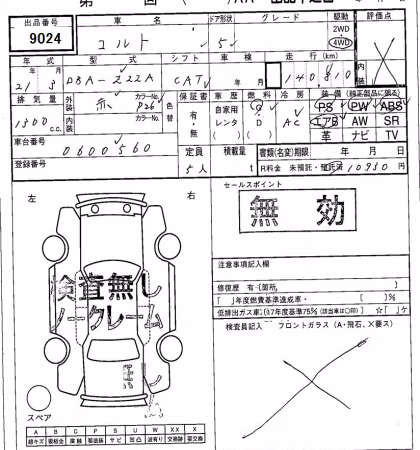 出品番号 車名 ドア形状 グレード 駆動 評価点
9024 コルト 5 2WD 4WD
年式 型式 シフト 車検 走行(km)
21年 3月 DBA-Z22A CAT 年 月 140,810
排気量 外装 赤 カラーNo. P26 色替 保証書 車歴 燃料 冷房 装備(純正部品に限る)
1300 c.c. 内装 カラーNo. 有・無 自家用 レンタ G D AC PS PW ABS
エアB AW SR
革 ナビ TV
車台番号 0600560
定員 積載量 書類(名変)期限 年 月 日
登録番号 5人 t R料金 未預託・預託済 10930円
左 右 セールスポイント
無効
注意事項記入欄
検査無し
ノークレーム
修復歴 有-(箇所 )
「 」年度燃費基準達成車・ 〔 〕%
低排出ガス車(17年度基準75%(該当車は○印) ☆「 」ケ
検査員記入 フロントガラス(A・飛石、X要ス)
スペア
A B C P S U W X XX